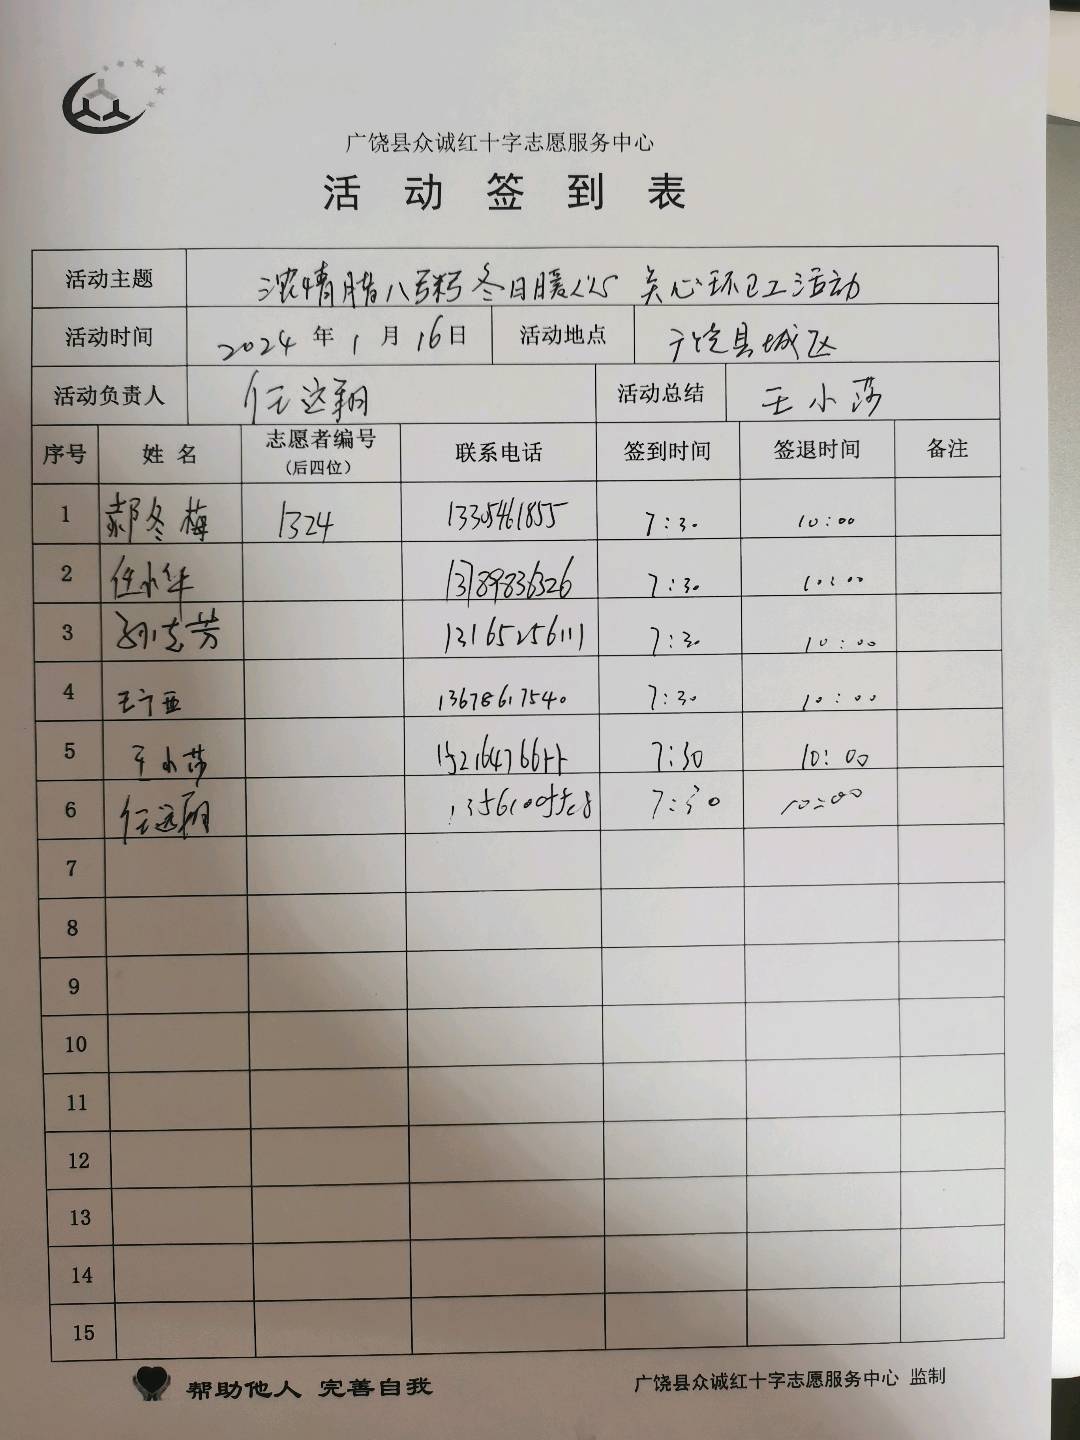 广饶县众诚红十字志愿服务中心
活动签到表
活动主题 浓情腊八粥 冬日暖人心 关心环卫工活动
活动时间 2024年1月16日 活动地点 广饶县城区
活动负责人 任远翔 活动总结 王小莎
序号 姓名 志愿者编号 联系电话 签到时间 签退时间 备注
（后四位）
1 郝冬梅 1324 13305461855 7:30 10:00
2 任小华 13789836326 7:30 10:00
3 孙志芳 13165256111 7:30 10:00
4 王宁亚 13678617540 7:30 10:00
5 王小莎 7:30 10:00
6 任远翔 7:30 10:00
7
8
9
10
11
12
13
14
15
帮助他人 完善自我 广饶县众诚红十字志愿服务中心 监制